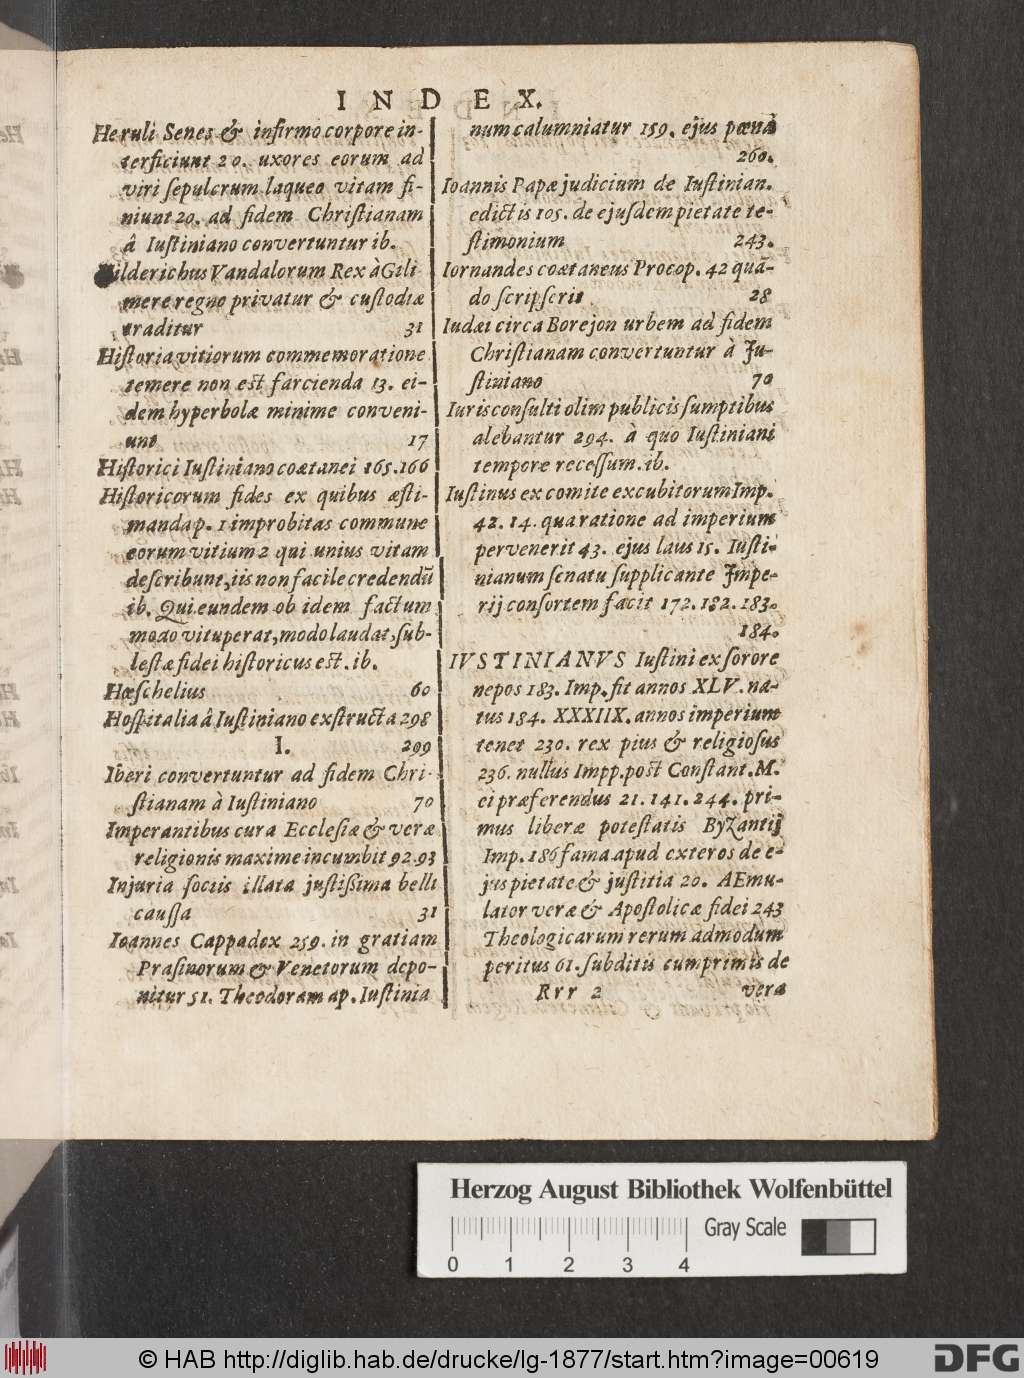 INDEX.
Heruli Senes & infirmo corpore in-
terficiunt 20. uxores eorum ad
viri ſepulcrum laqueo vitam fi-
niunt 20. ad fidem Chriſtianam
â Iuſtiniano convertuntur ib.
Hilderichus Vandalorum Rex à Gili
mere regno privatur & cuſtodiæ
traditur 31
Hiſtoria vitiorum commemoratione
temere non eſt farcienda 13. ei-
dem hyperbolæ minime conveni-
unt 17
Hiſtorici Iuſtiniano coætanei 165.166
Hiſtoricorum fides ex quibus æſti-
manda p. 1 improbitas commune
eorum vitium 2 qui unius vitam
deſcribunt, iis non facile credendū
ib. Qui eundem ob idem factum
modo vituperat, modo laudat, ſub-
leſtæ fidei hiſtoricus eſt. ib.
Hœſchelius 60
Hoſpitalia â Iuſtiniano exſtructa 298
I. 299
Iberi convertuntur ad fidem Chri-
ſtianam à Iuſtiniano 70
Imperantibus cura Eccleſiæ & veræ
religionis maxime incumbit 92.93
Injuria ſociis illata juſtißima belli
cauſſa 31
Ioannes Cappadox 259. in gratiam
Praſinorum & Venetorum depo-
nitur 51. Theodoram ap. Iuſtinia
num calumniatur 159. ejus pœna
260.
Ioannis Papæ judicium de Iuſtinian.
edictis 105. de ejuſdem pietate te-
ſtimonium 243.
Iornandes coætaneus Procop. 42 quā-
do ſcripſerit 28
Iudæi circa Borejon urbem ad fidem
Chriſtianam convertuntur à Ju-
ſtiniano 70
Iurisconſulti olim publicis ſumptibus
alebantur 294. à quo Iuſtiniani
tempore receſſum. ib.
Iuſtinus ex comite excubitorum Imp.
42. 14. qua ratione ad imperium
pervenerit 43. ejus laus 15. Iuſti-
nianum ſenatu ſupplicante Jmpe-
rij conſortem facit 172. 182. 183.
184.
IVSTINIANVS Iuſtini ex ſorore
nepos 183. Imp. fit annos XLV. na-
tus 184. XXXIIX. annos imperium
tenet 230. rex pius & religioſus
236. nullus Impp. poſt Conſtant. M.
ei præferendus 21. 141. 244. pri-
mus liberæ poteſtatis Byzantij
Imp. 186 fama apud exteros de e-
jus pietate & juſtitia 20. AEmu-
lator veræ & Apoſtolicæ fidei 243
Theologicarum rerum admodum
peritus 61. ſubditis cumprimis de
Rrr 2 vera
Herzog August Bibliothek Wolfenbüttel
Gray Scale
0 1 2 3 4
© HAB http://diglib.hab.de/drucke/lg-1877/start.htm?image=00619
DFG